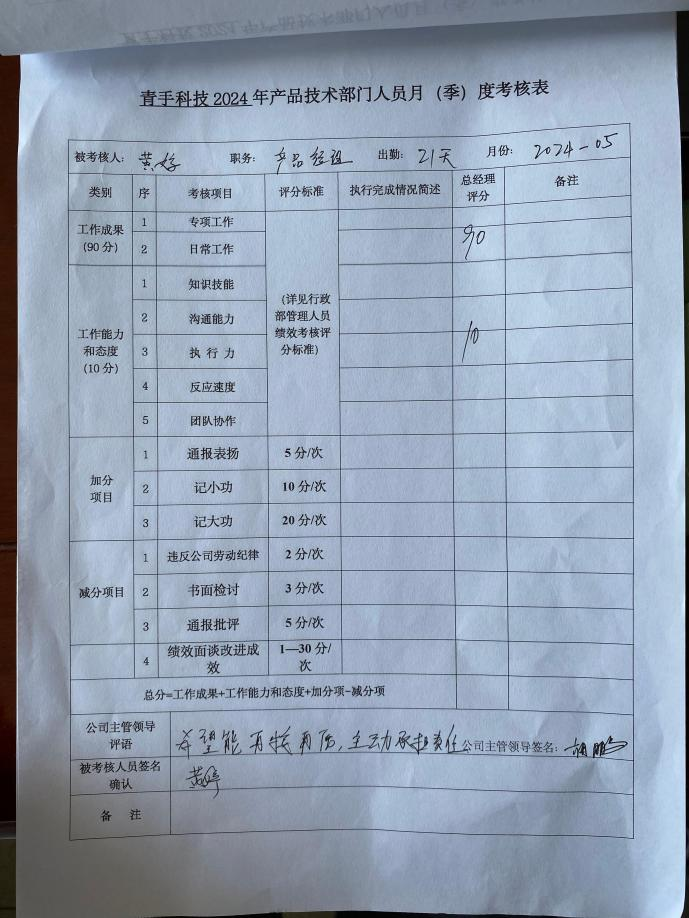 青手科技2024年产品技术部门人员月（季）度考核表
被考核人： 黄婷 职务： 产品经理 出勤： 21天 月份： 2024-05
类别 序 考核项目 评分标准 执行完成情况简述 总经理评分 备注
工作成果（90分） 1 专项工作
2 日常工作 90
（详见行政部管理人员绩效考核评分标准）
工作能力和态度（10分） 1 知识技能
2 沟通能力
3 执行力 10
4 反应速度
5 团队协作
加分项目 1 通报表扬 5分/次
2 记小功 10分/次
3 记大功 20分/次
减分项目 1 违反公司劳动纪律 2分/次
2 书面检讨 3分/次
3 通报批评 5分/次
4 绩效面谈改进成效 1—30分/次
总分=工作成果+工作能力和态度+加分项-减分项
公司主管领导评语 希望能再接再厉，主动承担责任 公司主管领导签名： 胡鹏
被考核人员签名确认 黄婷
备注